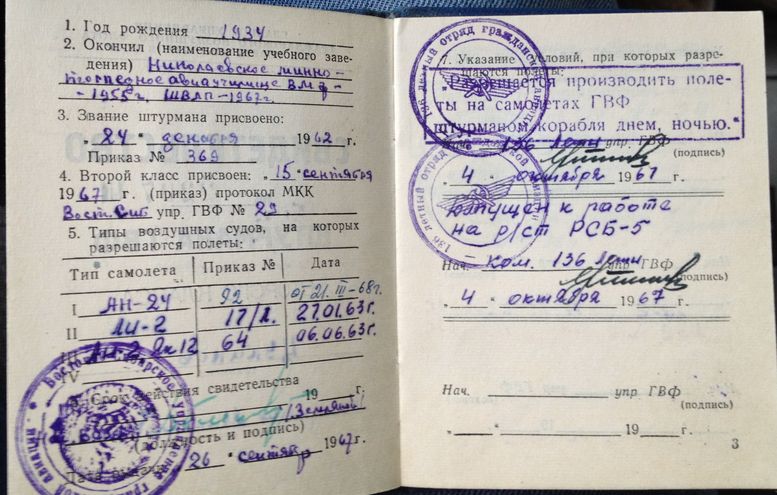 1. Год рождения 1934
2. Окончил (наименование учебного заве-
дения) Николаевское минно-
торпедное авиаучилище ВМФ
- 1955г. ШВЛП - 1967г.
3. Звание штурмана присвоено:
"24" декабря 1962г.
Приказ № 369
4. Второй класс присвоен: "15" сентября
1967 г. (приказ) протокол МКК
Вост. Сиб упр. ГВФ № 29.
5. Типы воздушных судов, на которых
разрешаются полеты:
Тип самолета Приказ № Дата
I АН-24 92 от 21.III-68г.
II Ли-2 17/л. 27.01.63г.
III Як12 64 06.06.63г.
IV
Срок действия свидетельства
19 г.
(должность и подпись)
Дата выдачи 26 сентябр 1967г.
Восточно-Сибирское управление
7. Указание условий, при которых разре-
шаются полеты:
"Разрешается производить поле-
ты на самолетах ГВФ
штурманом корабля днем, ночью."
Нач. 136 упр. ГВФ
(подпись)
"4" октября 1967
136 летный отряд гражданской авиации
допущен к работе
на р/ст РСБ-5
136 летный отряд гражданской авиации
Нач. ком. 136 упр ГВФ
(подпись)
"4" октября 1967
Нач. упр ГВФ
(подпись)
" " 19 г.
3